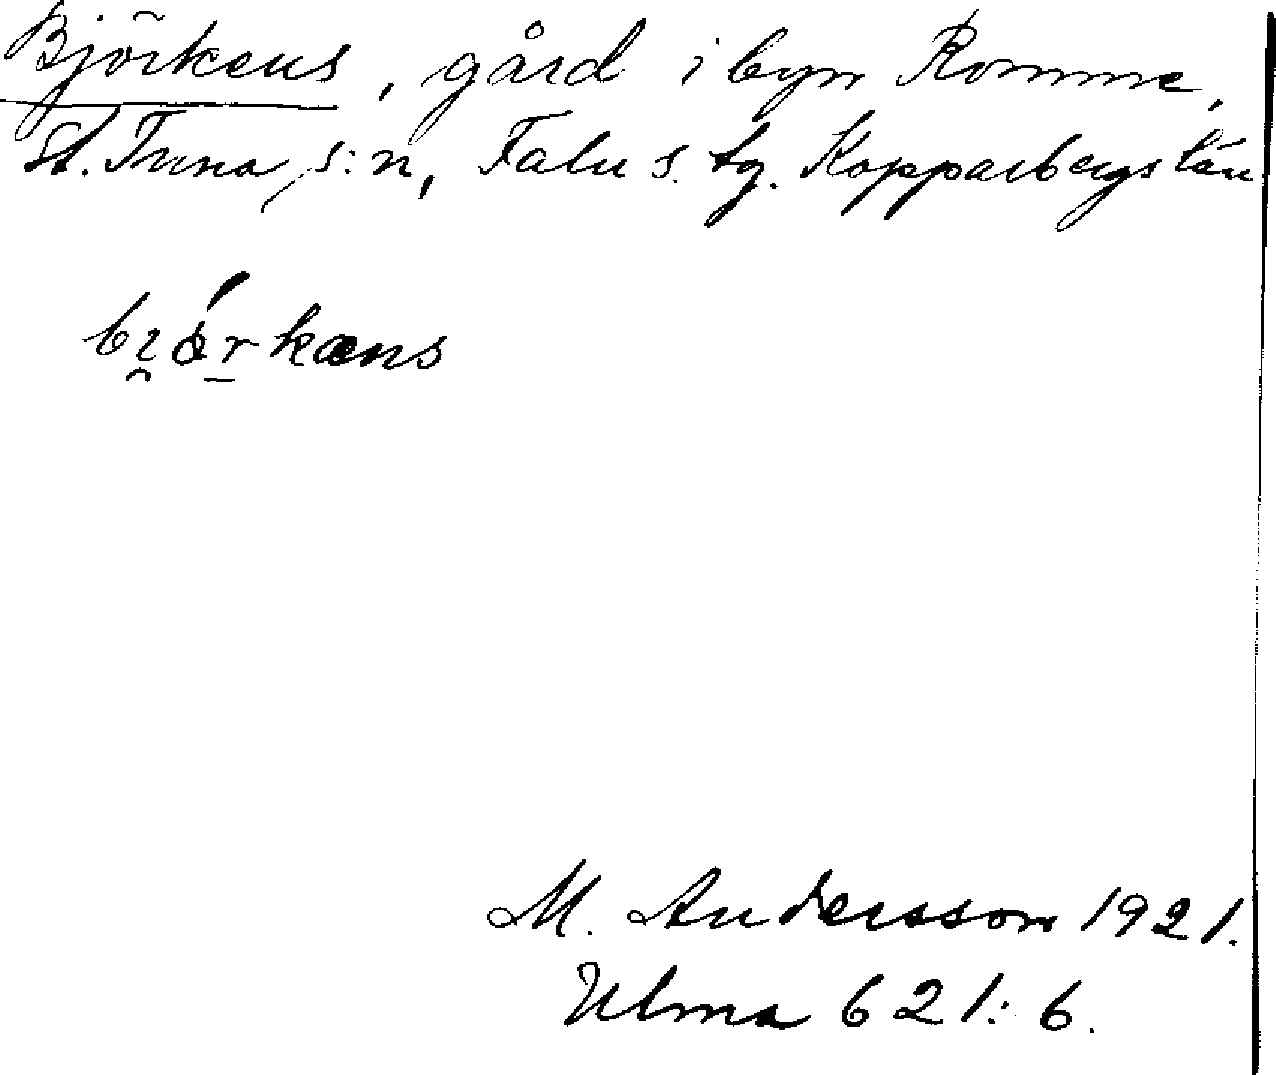 Björkens, gård i byn Romme,
St. Tuna s:n, Falu s. tg. Kopparbergs län
M. Andersson 1921.
Ulma 621:6.